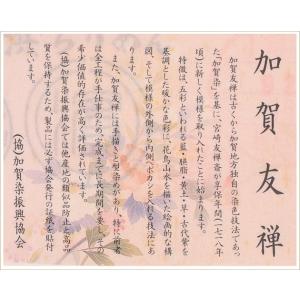 加賀友禅
加賀友禅は古くから加賀地方独自の染色技法であっ
た“加賀染”を基に、宮崎友禅斎が享保年間(一七一八年
頃)に新しく模様を取り入れたことに始まります。
特徴は、五彩といわれる藍・臙脂・黄土・草・古代紫を
基調とした暖かな色彩に、花鳥山水を描いた絵画的な構
図、そして模様の外側から内側へボカシを入れる技法にあ
ります。
また、加賀友禅には手描きと型染めがあり、特に前者
は全工程が手仕事のため、完成までに長期間を要し、その
希少価値的存在が高く評価されています。
(協)加賀染振興協会では他産地の類似品防止と高品
質を保持するため、製品には必ず協会発行の証紙を貼付
しています。
(協)加賀染振興協会